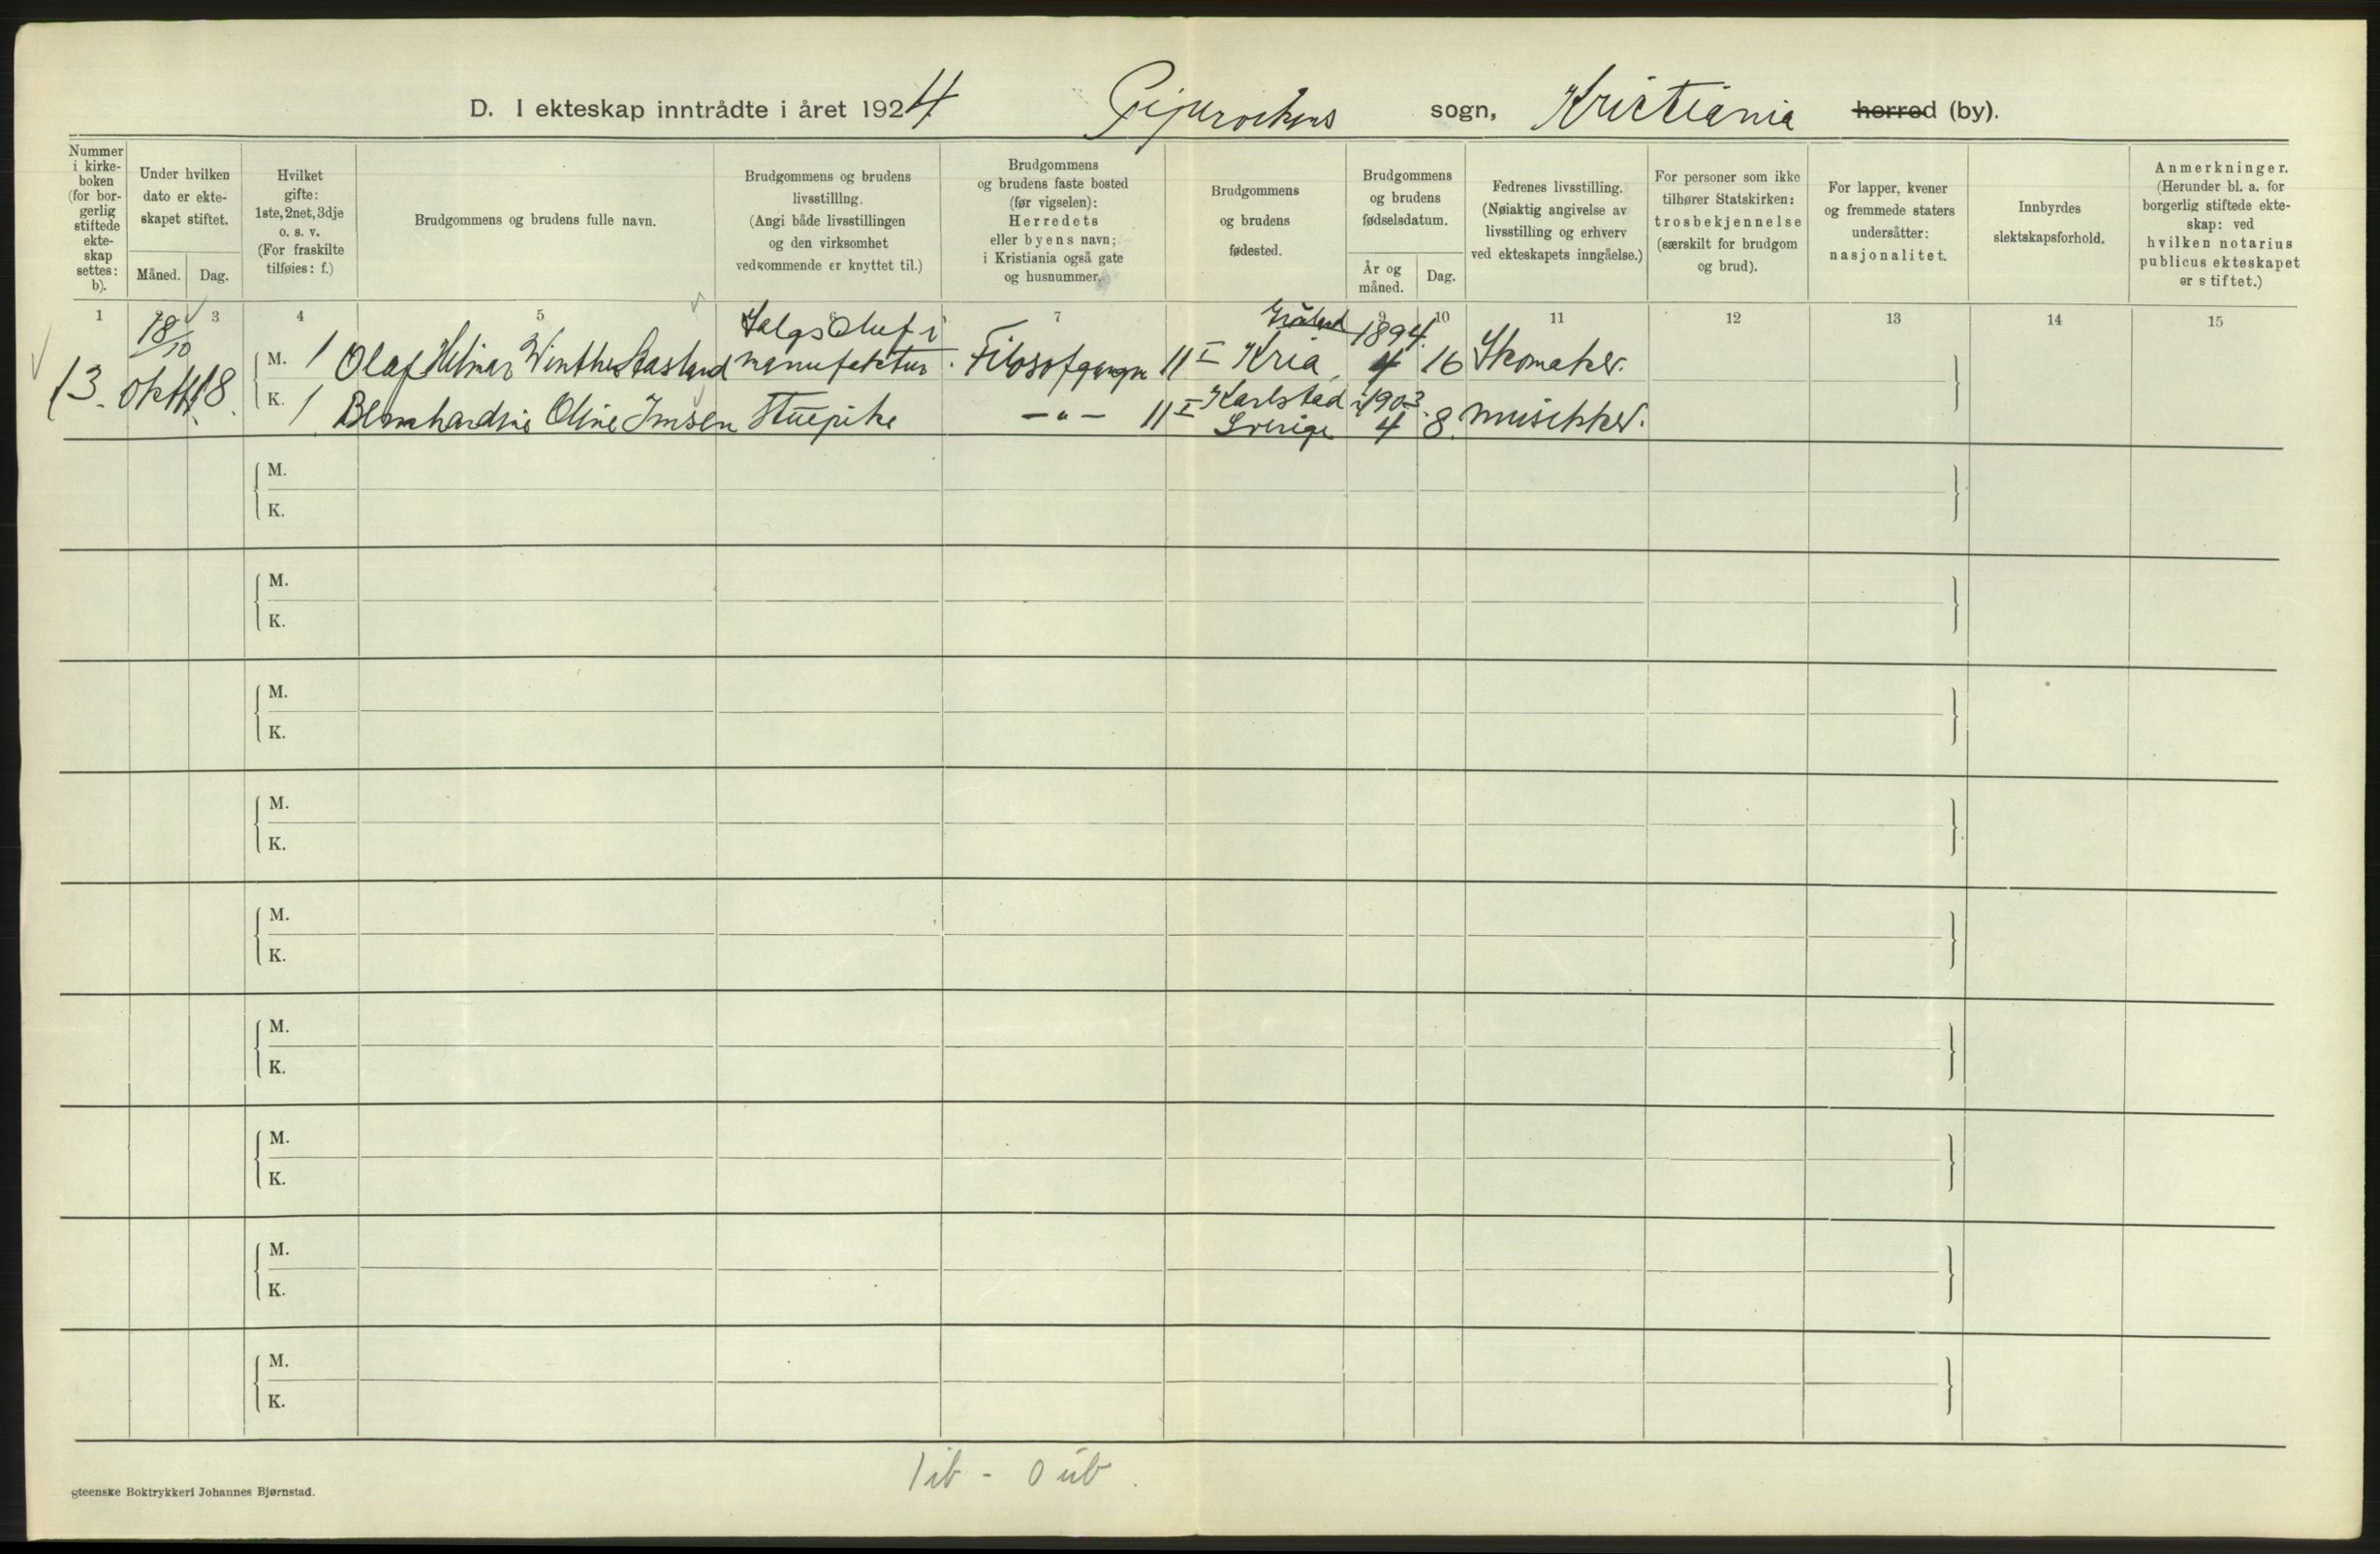 D. I ekteskap inntrådte i året 1924 sogn, Kristiania herred (by).
Nummer i kirkeboken (for borgerlig stiftede ekteskap settes: b).
Under hvilken dato er ekteskapet stiftet.
Måned. Dag.
Hvilket gifte: 1ste, 2net, 3dje o. s. v. (For fraskilte tilføies: f.)
Brudgommens og brudens fulle navn.
Brudgommens og brudens livsstilling. (Angi både livsstillingen og den virksomhet vedkommende er knyttet til.)
Brudgommens og brudens faste bosted (før vigselen): Herredets eller byens navn; i Kristiania også gate og husnummer.
Brudgommens og brudens fødested.
Brudgommens og brudens fødselsdatum.
År og måned. Dag.
Fedrenes livsstilling. (Nøiaktig angivelse av livsstilling og erhverv ved ekteskapets inngåelse.)
For personer som ikke tilhører Statskirken: trosbekjennelse (særskilt for brudgom og brud).
For lapper, kvener og fremmede staters undersåtter: nasjonalitet.
Innbyrdes slektskapsforhold.
Anmerkninger. (Herunder bl. a. for borgerlig stiftede ekteskap: ved hvilken notarius publicus ekteskapet er stiftet.)
1 3 4 5 7 9 10 11 12 13 14 15
18/10
13. 18.
M. 1 Olaf Hilmar Winther Aasland Salgschef i manufaktur. Filosofgangen 11 I Kria 1894. 4 16 Skomaker.
K. 1 Bernhardine Oline Imsen Stuepike -"- 11 I Karlstad Sverige 1903. 4 8. musikker.
M.
K.
M.
K.
M.
K.
M.
K.
M.
K.
M.
K.
M.
K.
M.
K.
M.
K.
1 ib - 0 ub.
gteenske Boktrykkeri Johannes Bjørnstad.